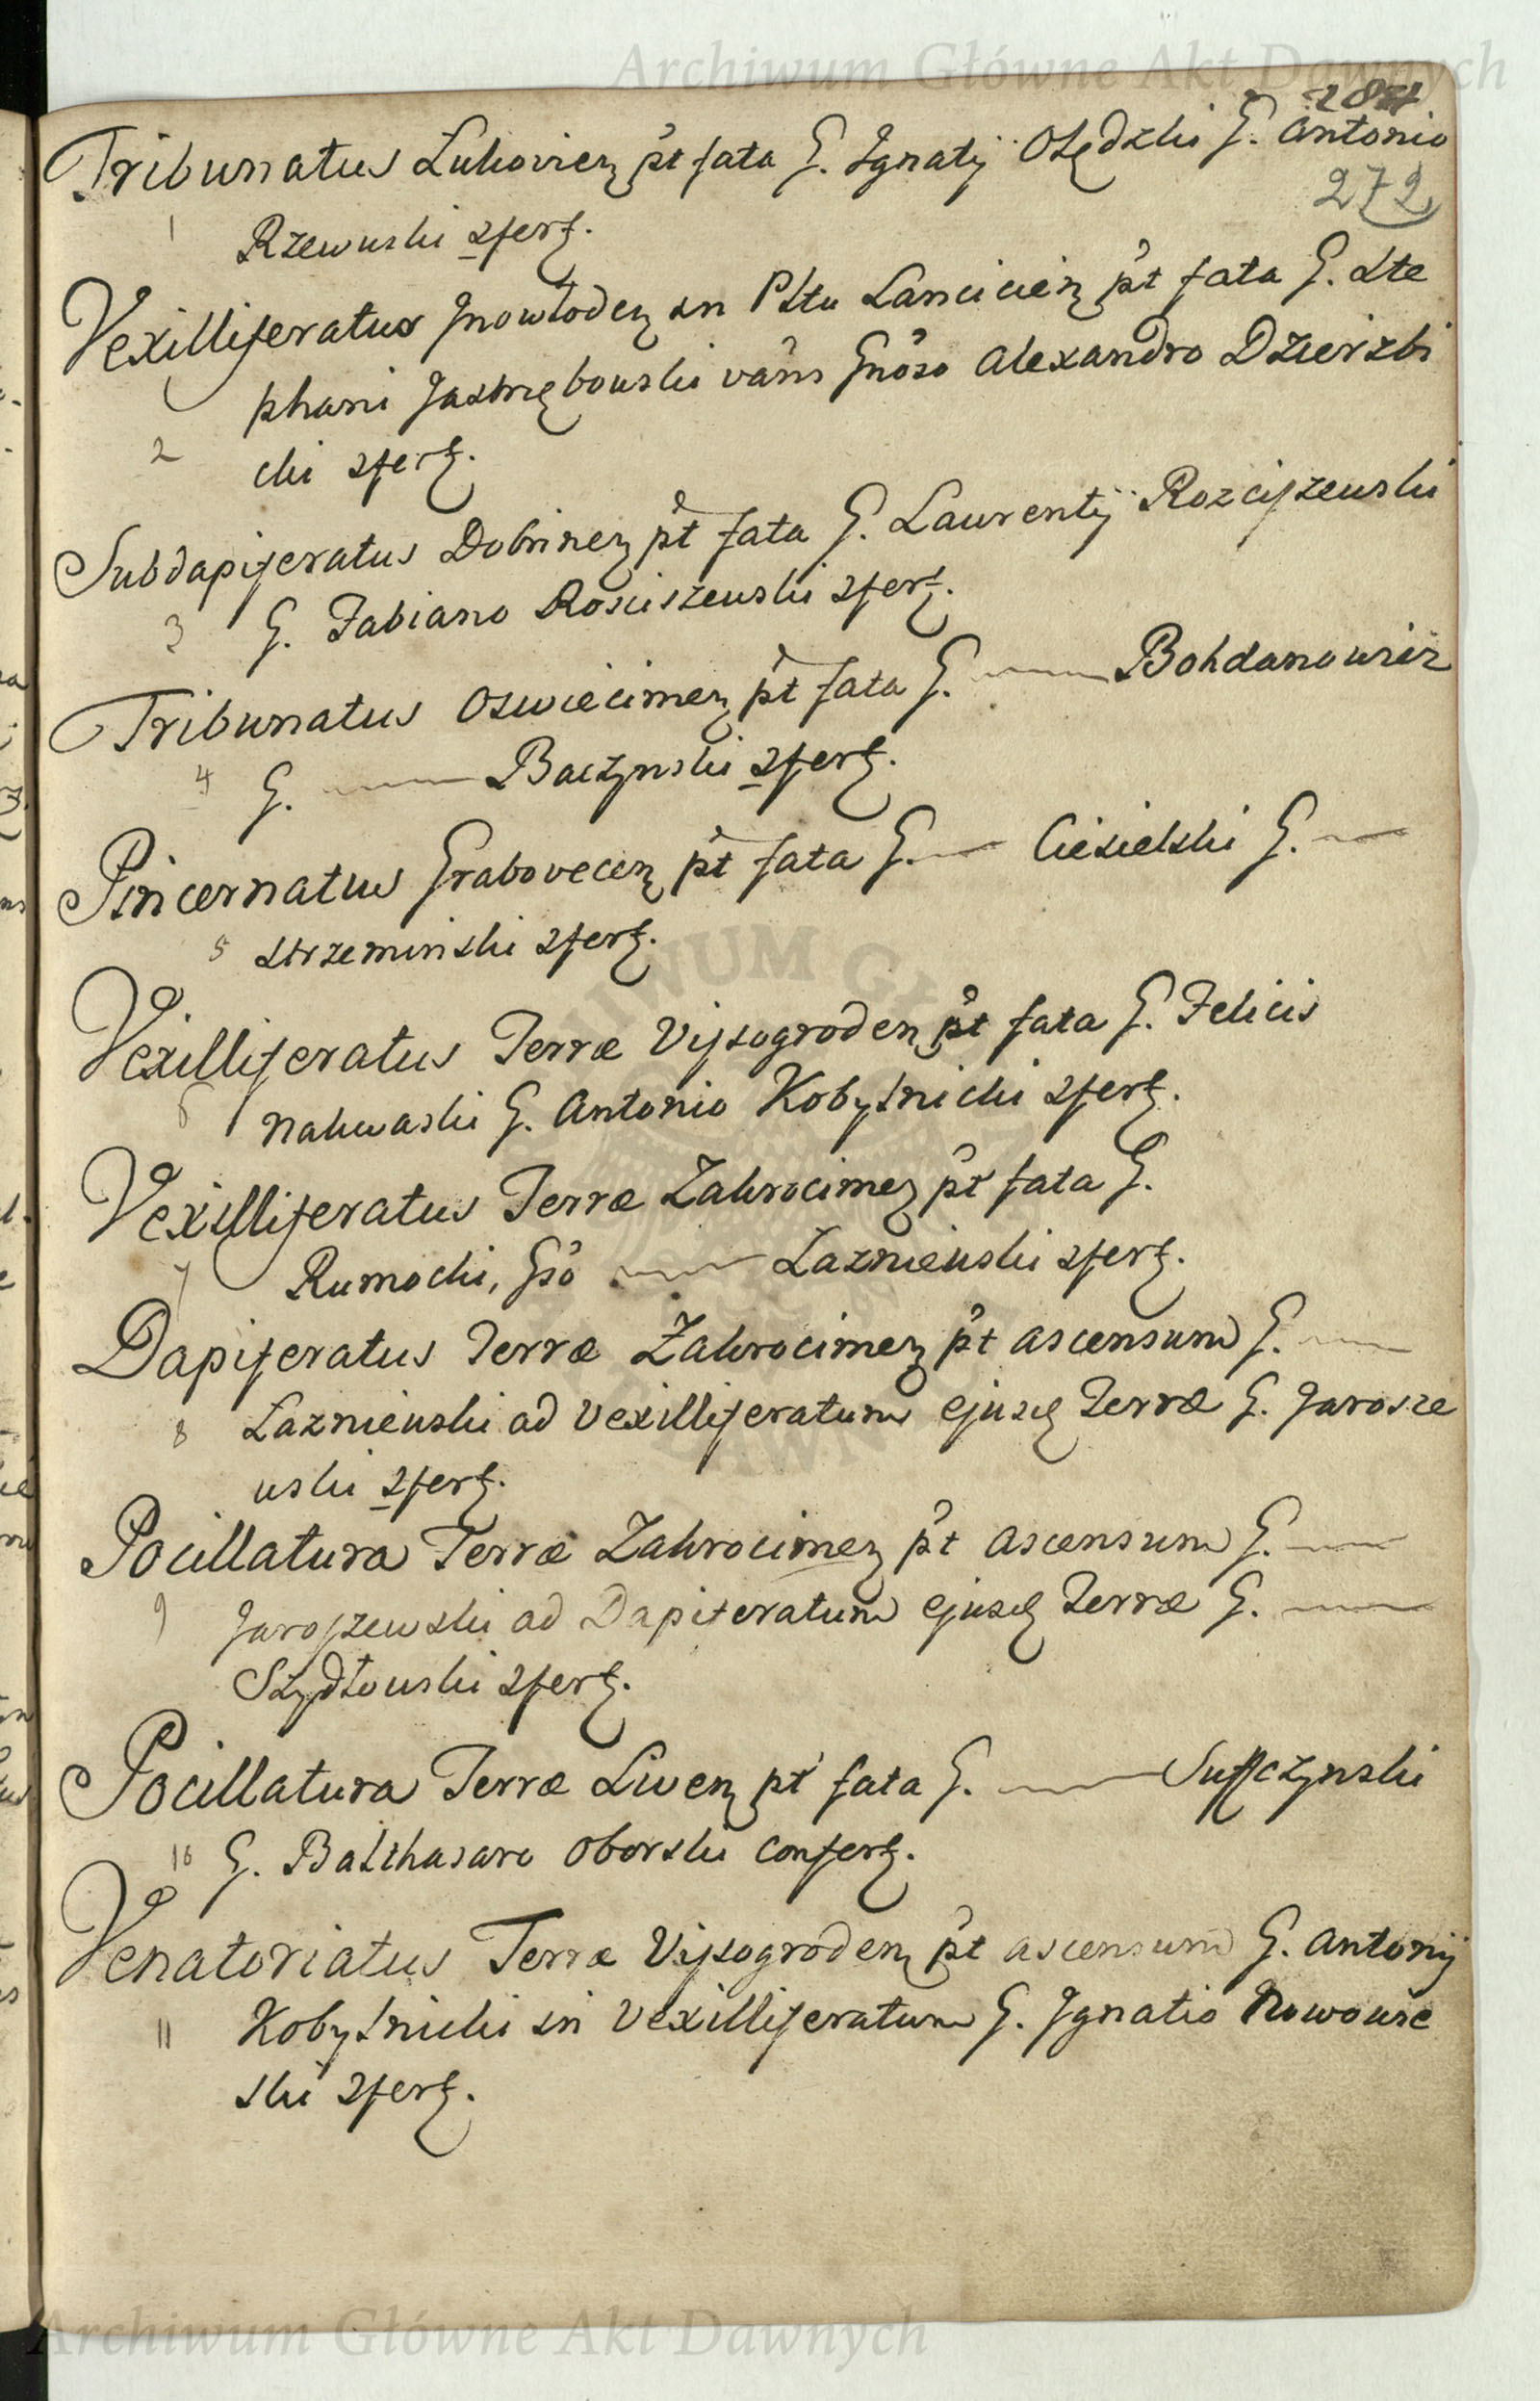 Archiwum Główne Akt Dawnych
284
Tribunatus Lukovien pt fata G. Ignatij Olędzki G. Antonio
272
1 Rzewuski 2fert.
Vexilliferatus Jnowłoden in Pltu Lancicien pt fata G. Ste
phani Jastrzębowski vans Gnoso Alexandro Dzierzbi
2 cki 2fert.
Subdapiferatus Dobrinen pt fata G. Laurentij Rozciszewski
3 G. Fabiano Rosciszewski 2fert.
Tribunatus Oswiecimen pt fata G. — Bohdanowicz
4 G. — Baczynski 2fert.
Pincernatus Grabovecen pt fata G. — Ciesielski G. —
5 Strzeminski 2fert.
Vexilliferatus Terræ Vissogroden pt fata G. Felicis
6 Nakwaski G. Antonio Kobylnicki 2fert.
Vexilliferatus Terræ Zakrocimen pt fata G.
7 Rumocki, Gso — Łazniewski 2fert.
Dapiferatus Terræ Zakrocimen pt ascensum G. —
8 Łazniewski ad Vexilliferatum ejusd Terræ G. Jarosze
wski 2fert.
Pocillatura Terræ Zakrocimen pt ascensum G. —
9 Jaroszewski ad Dapiferatum ejusd Terræ G. —
Szydłowski 2fert.
Pocillatura Terræ Liven pt fata G. — Suffczynski
10 G. Balthasaro Oborski confert.
Venatoriatus Terræ Vissogroden pt ascensum G. Antonij
11 Kobylnicki in Vexilliferatum G. Ignatio Nowowie
ski 2fert.
Archiwum Główne Akt Dawnych